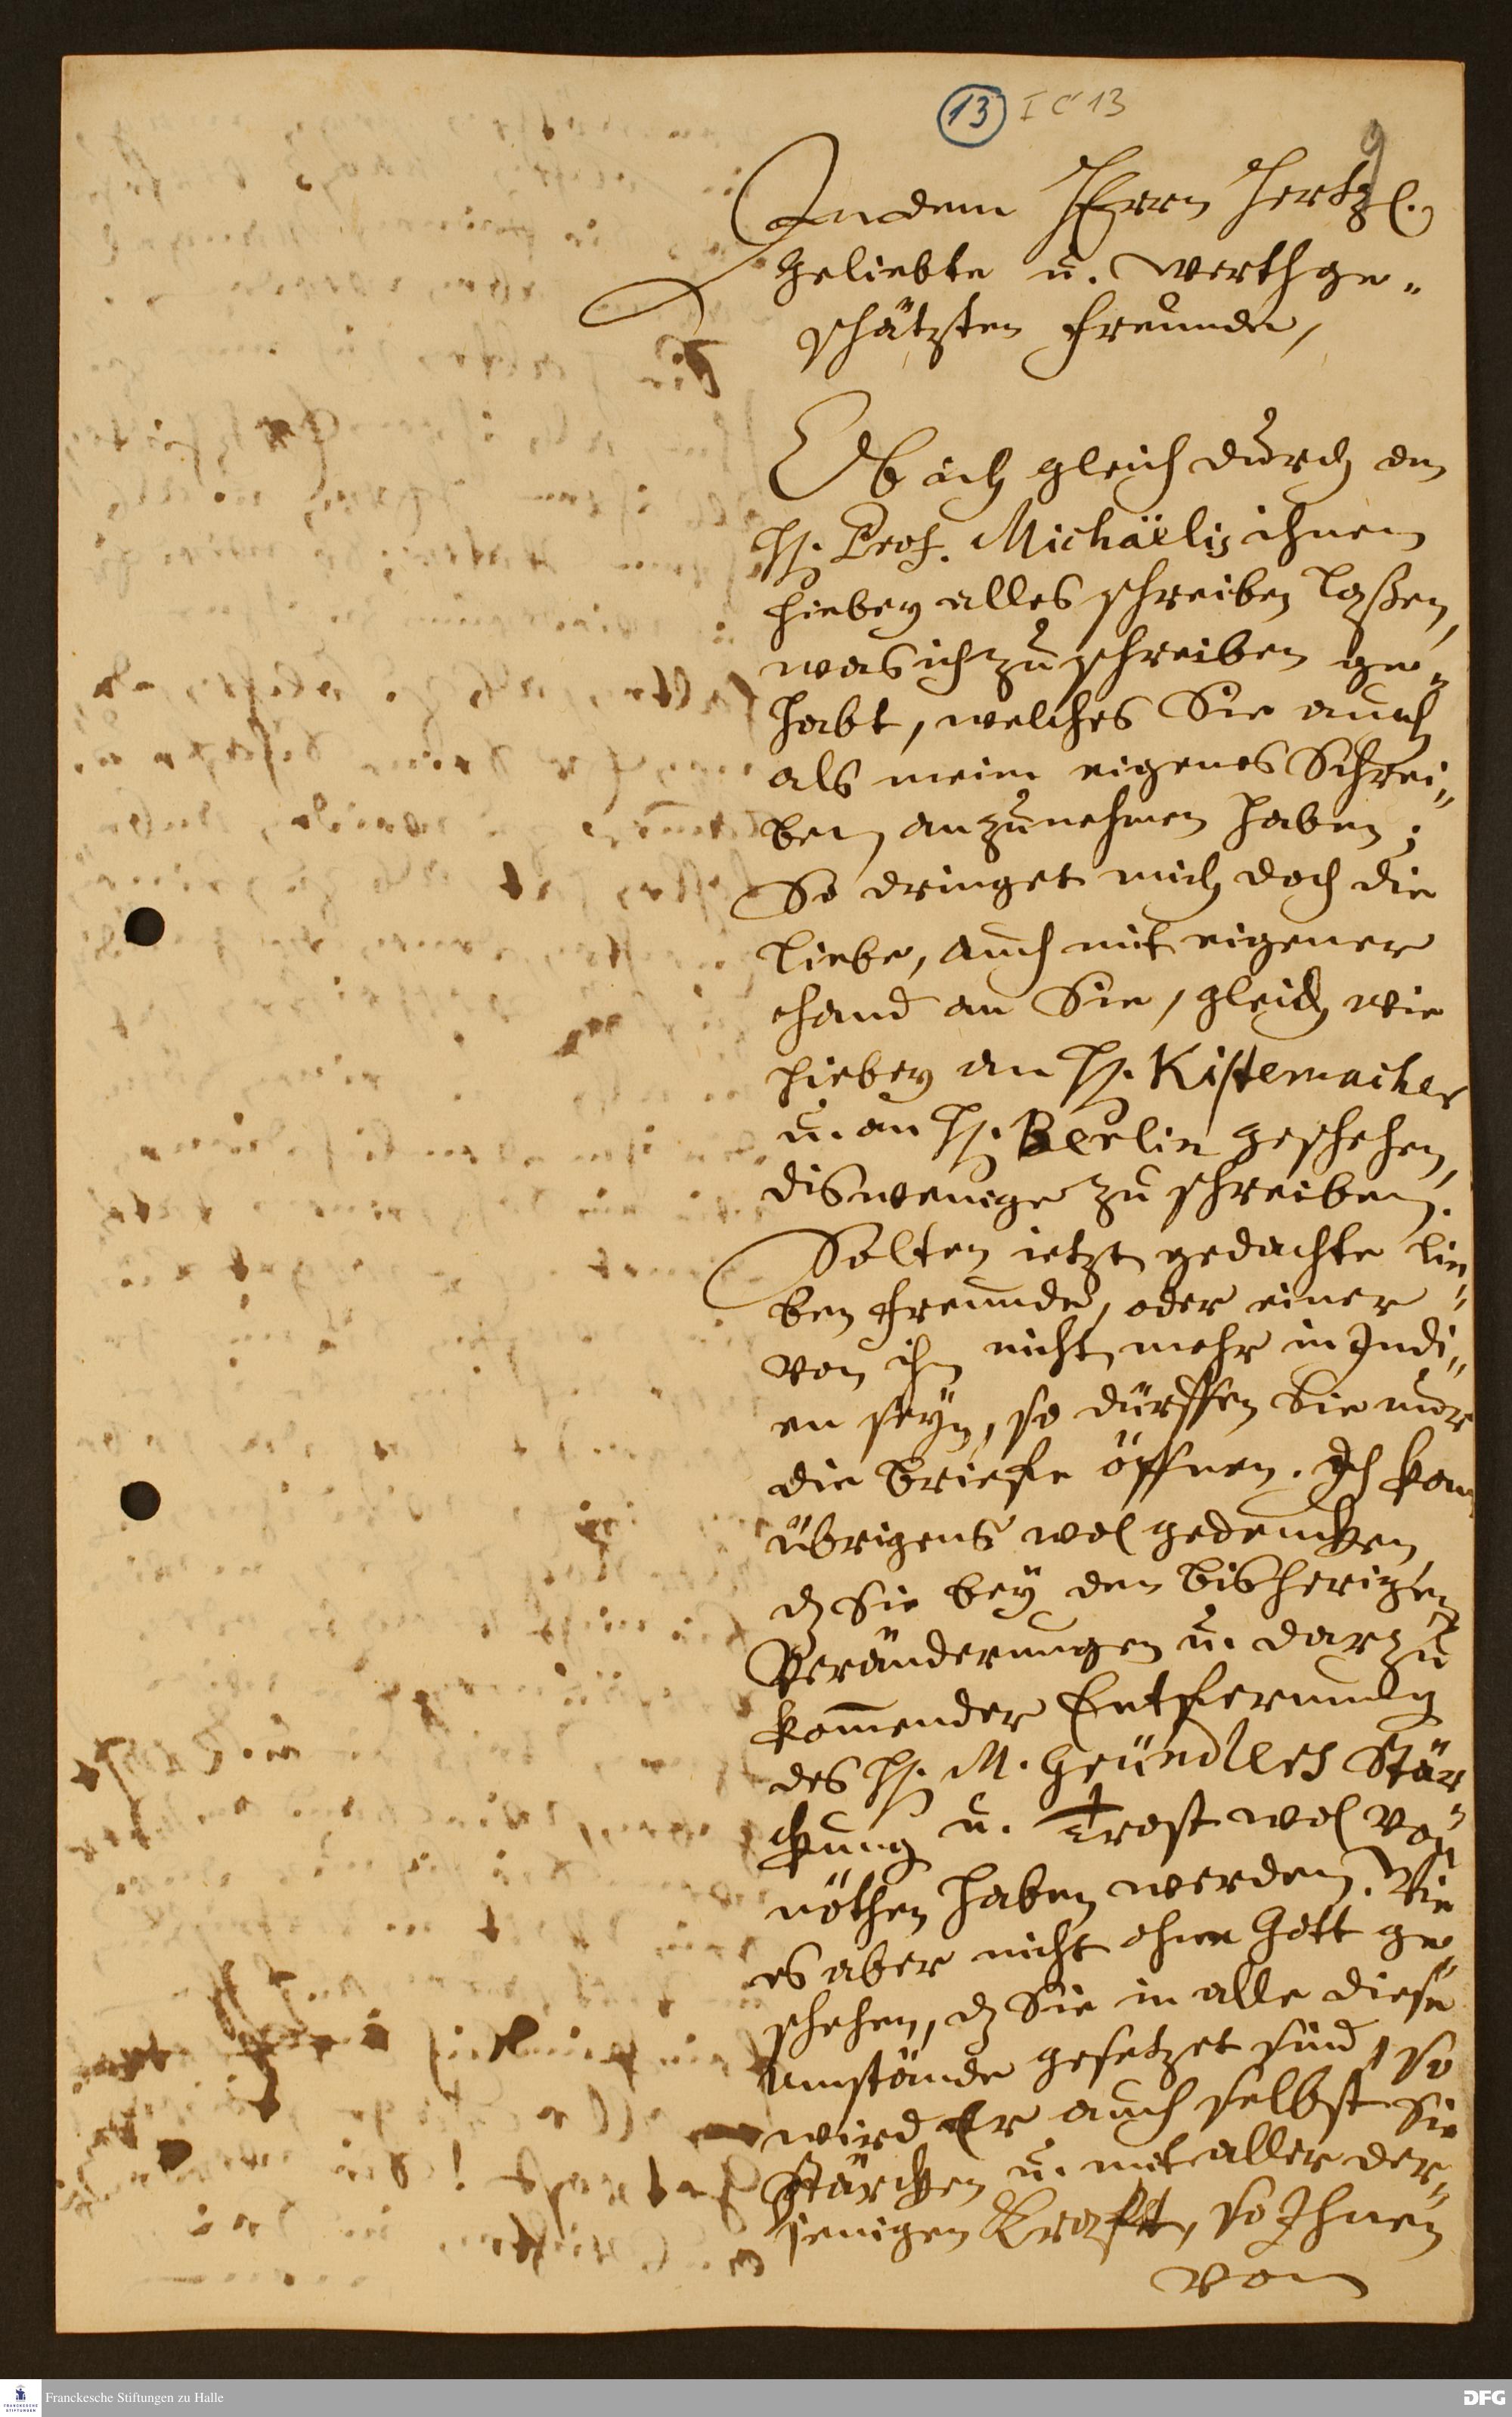 13 I C 13
9
In dem Herrn Hertzl.
geliebte u. werthge-
schätzten Freunde,
Ob ich gleich durch den
H. Prof. Michaëlis ihnen
hiebey alles schreiben laßen,
was ich zu schreiben ge-
habt, welches Sie auch
als mein eigenes Schrei-
ben anzunehmen haben;
So dringet mich doch die
Liebe, auch mit eigener
Hand an Sie, gleich wie
hiebey an H. Kistemacher
u. an H. Berlin geschehen,
dis wenige zu schreiben.
Solten ietzt gedachte lie-
ben Freunde, oder einer
von ihn nicht mehr in Indi-
en seyn, so dürffen Sie nur
die Briefe öffnen. Ich kan
übrigens wol gedencken,
dz Sie bey den bisherigen
Veränderungen u. darzu
kom̄ender Entfernung
des H. M. Gründlers Stär-
ckung u. Trost wol von
nöthen haben werden. Wie
es aber nicht ohne Gott ge-
schehen, dz Sie in alle diese
Umstände gesetzet sind, so
wird Er auch selbst Sie
stärcken u. mit aller der-
jenigen Krafft, so Ihnen
von
Franckesche Stiftungen zu Halle
DFG